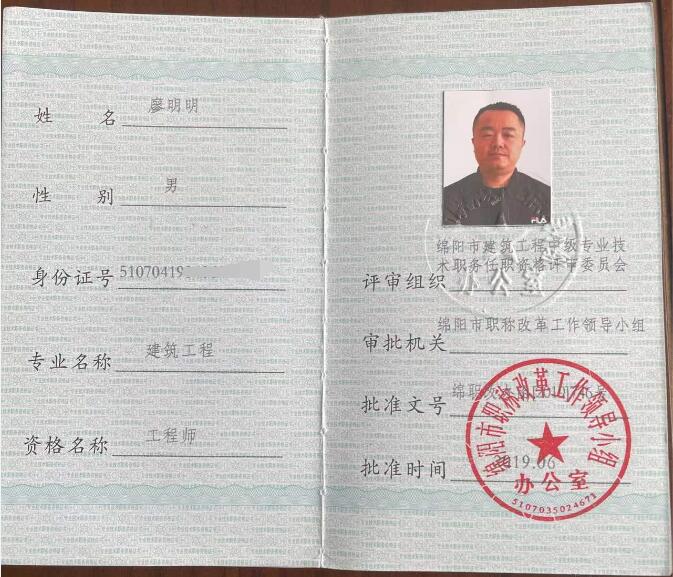 姓 名 廖明明
性 别 男
身份证号 51070419
专业名称 建筑工程
资格名称 工程师
FILA
绵阳市建筑工程中级专业技
评审组织 术职务任职资格评审委员会
办公室
审批机关 绵阳市职称改革工作领导小组
批准文号 绵职改
批准时间 2019.06
绵阳市职称改革工作领导小组
办公室
5107035024671